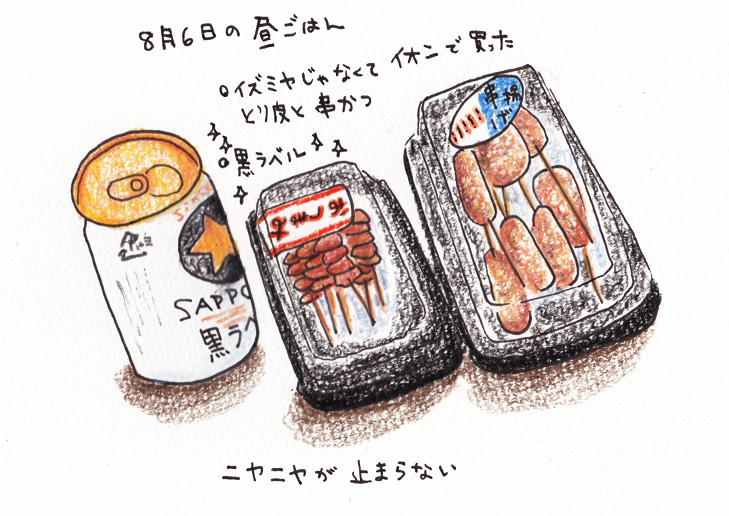 8月6日の 昼ごはん
イズミヤじゃなくて イオンで 買った
とり皮と 串かつ
黒ラベル
串揚げ
SAPPO
黒ラベ
ニヤニヤが 止まらない